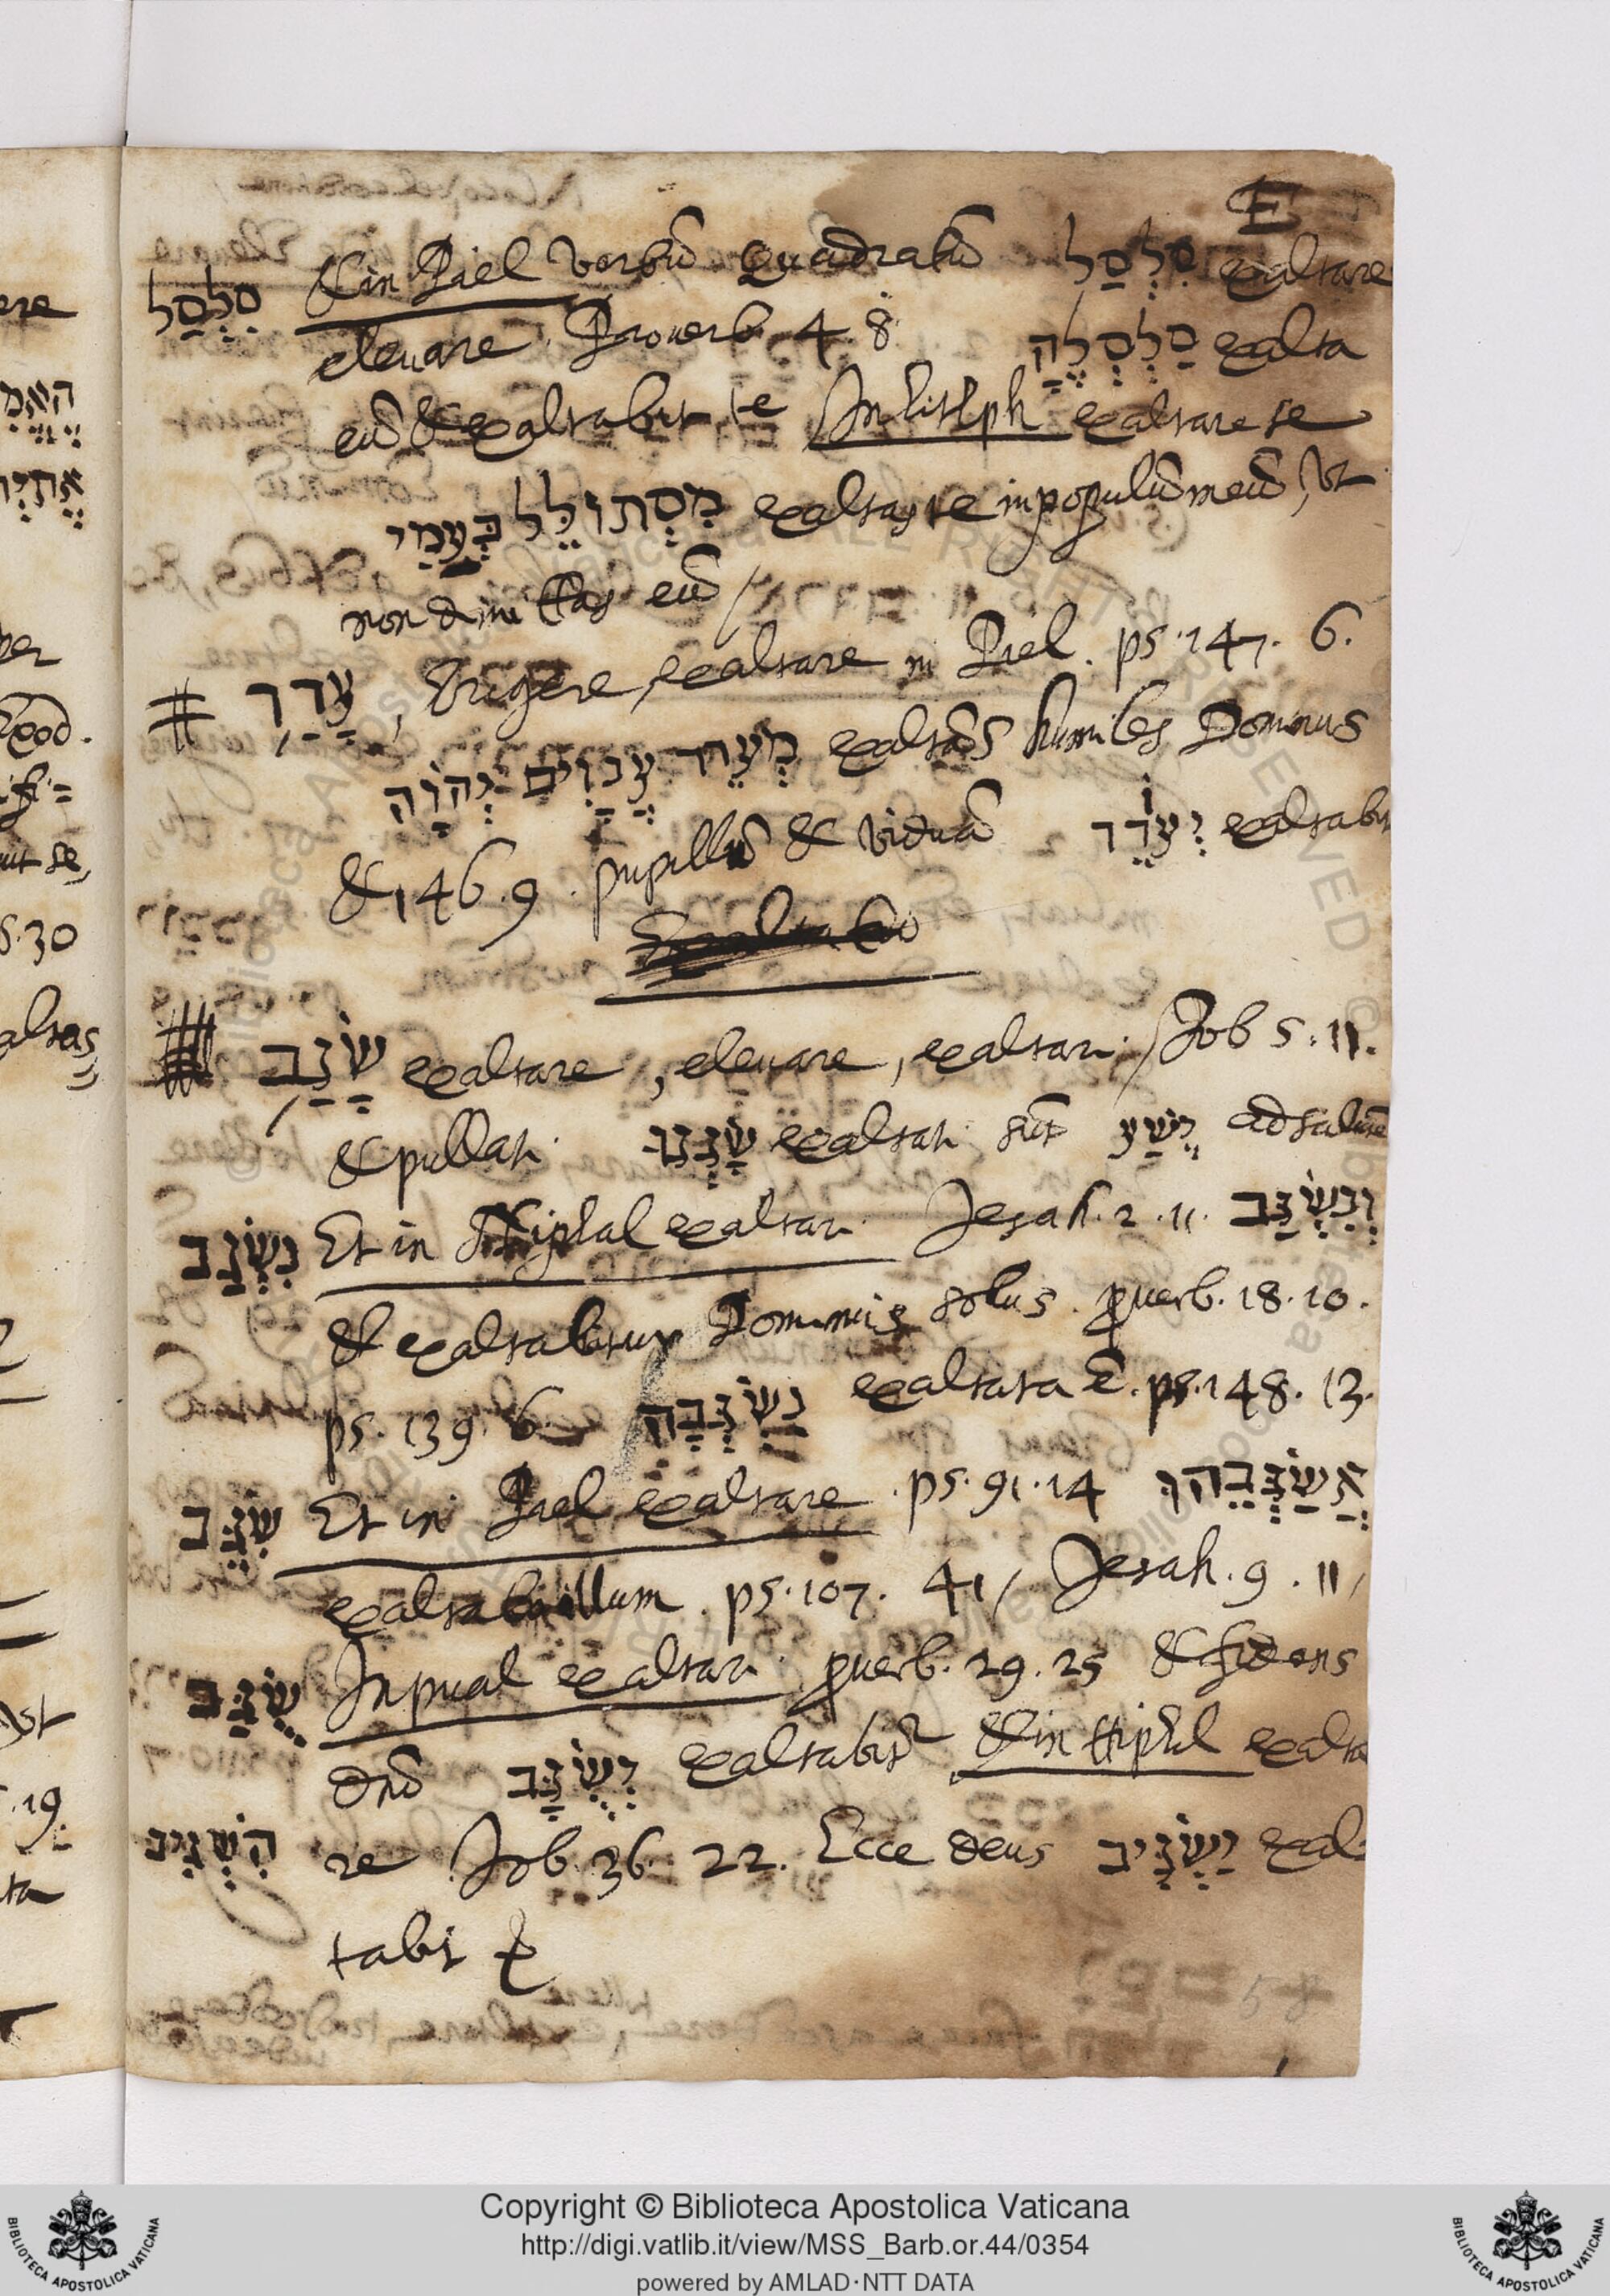 E
סִלְסַל & in Piel verbũ Quadratũ סִלְסַל exaltare
eleuare Prouerb. 4. 8 סַלְסְלֶהָ exalta
eũ & exaltabit te In hithp̃h exaltare se
מִסְתּוֹלֵל בְּעַמִי exaltas te in populũ meũ, Ut
non dimittas eũ
# עָדַד, Erigere, exaltare in Piel. ps. 147. 6.
מְעֹדֵד עֲנָוִים יְהֹוָה exaltãs humiles Dominus
& 146. 9. pupillũ & viduã יְעֹדֵד exaltabit
שָׂגַב exaltare, eleuare, exaltari. Job 5. 11.
& pullati שָׂגְבוּ exaltati sũt יֶשַׁע ad salutẽ
נִשְׂגַב Et in Niphal exaltari Jesah. 2. 11. וְנִשְׂגַּב
& exaltabitur Dominus solus. puerb. 18. 10.
ps. 139. 6 נִשְׂגְּבָה exaltata ẽ. ps. 148. 13.
שִׂגֵּב Et in Piel exaltare. ps. 91. 14 אֲשַׂגְּבֵהוּ
exaltabo illum. ps. 107. 41, Jesah. 9. 11,
שֻׂגַּב In pual exaltari puerb. 29. 25 & fidens
Dnõ יְשֻׂגָּב exaltabit̃ & in Hiphil exalta
הִשְׂגִּיב re Job. 36. 22. Ecce deus יַשְׂגִּיב exal-
tabit
58
Copyright © Biblioteca Apostolica Vaticana
http://digi.vatlib.it/view/MSS_Barb.or.44/0354
powered by AMLAD·NTT DATA
BIBLIOTECA APOSTOLICA VATICANA
BIBLIOTECA APOSTOLICA VATICANA